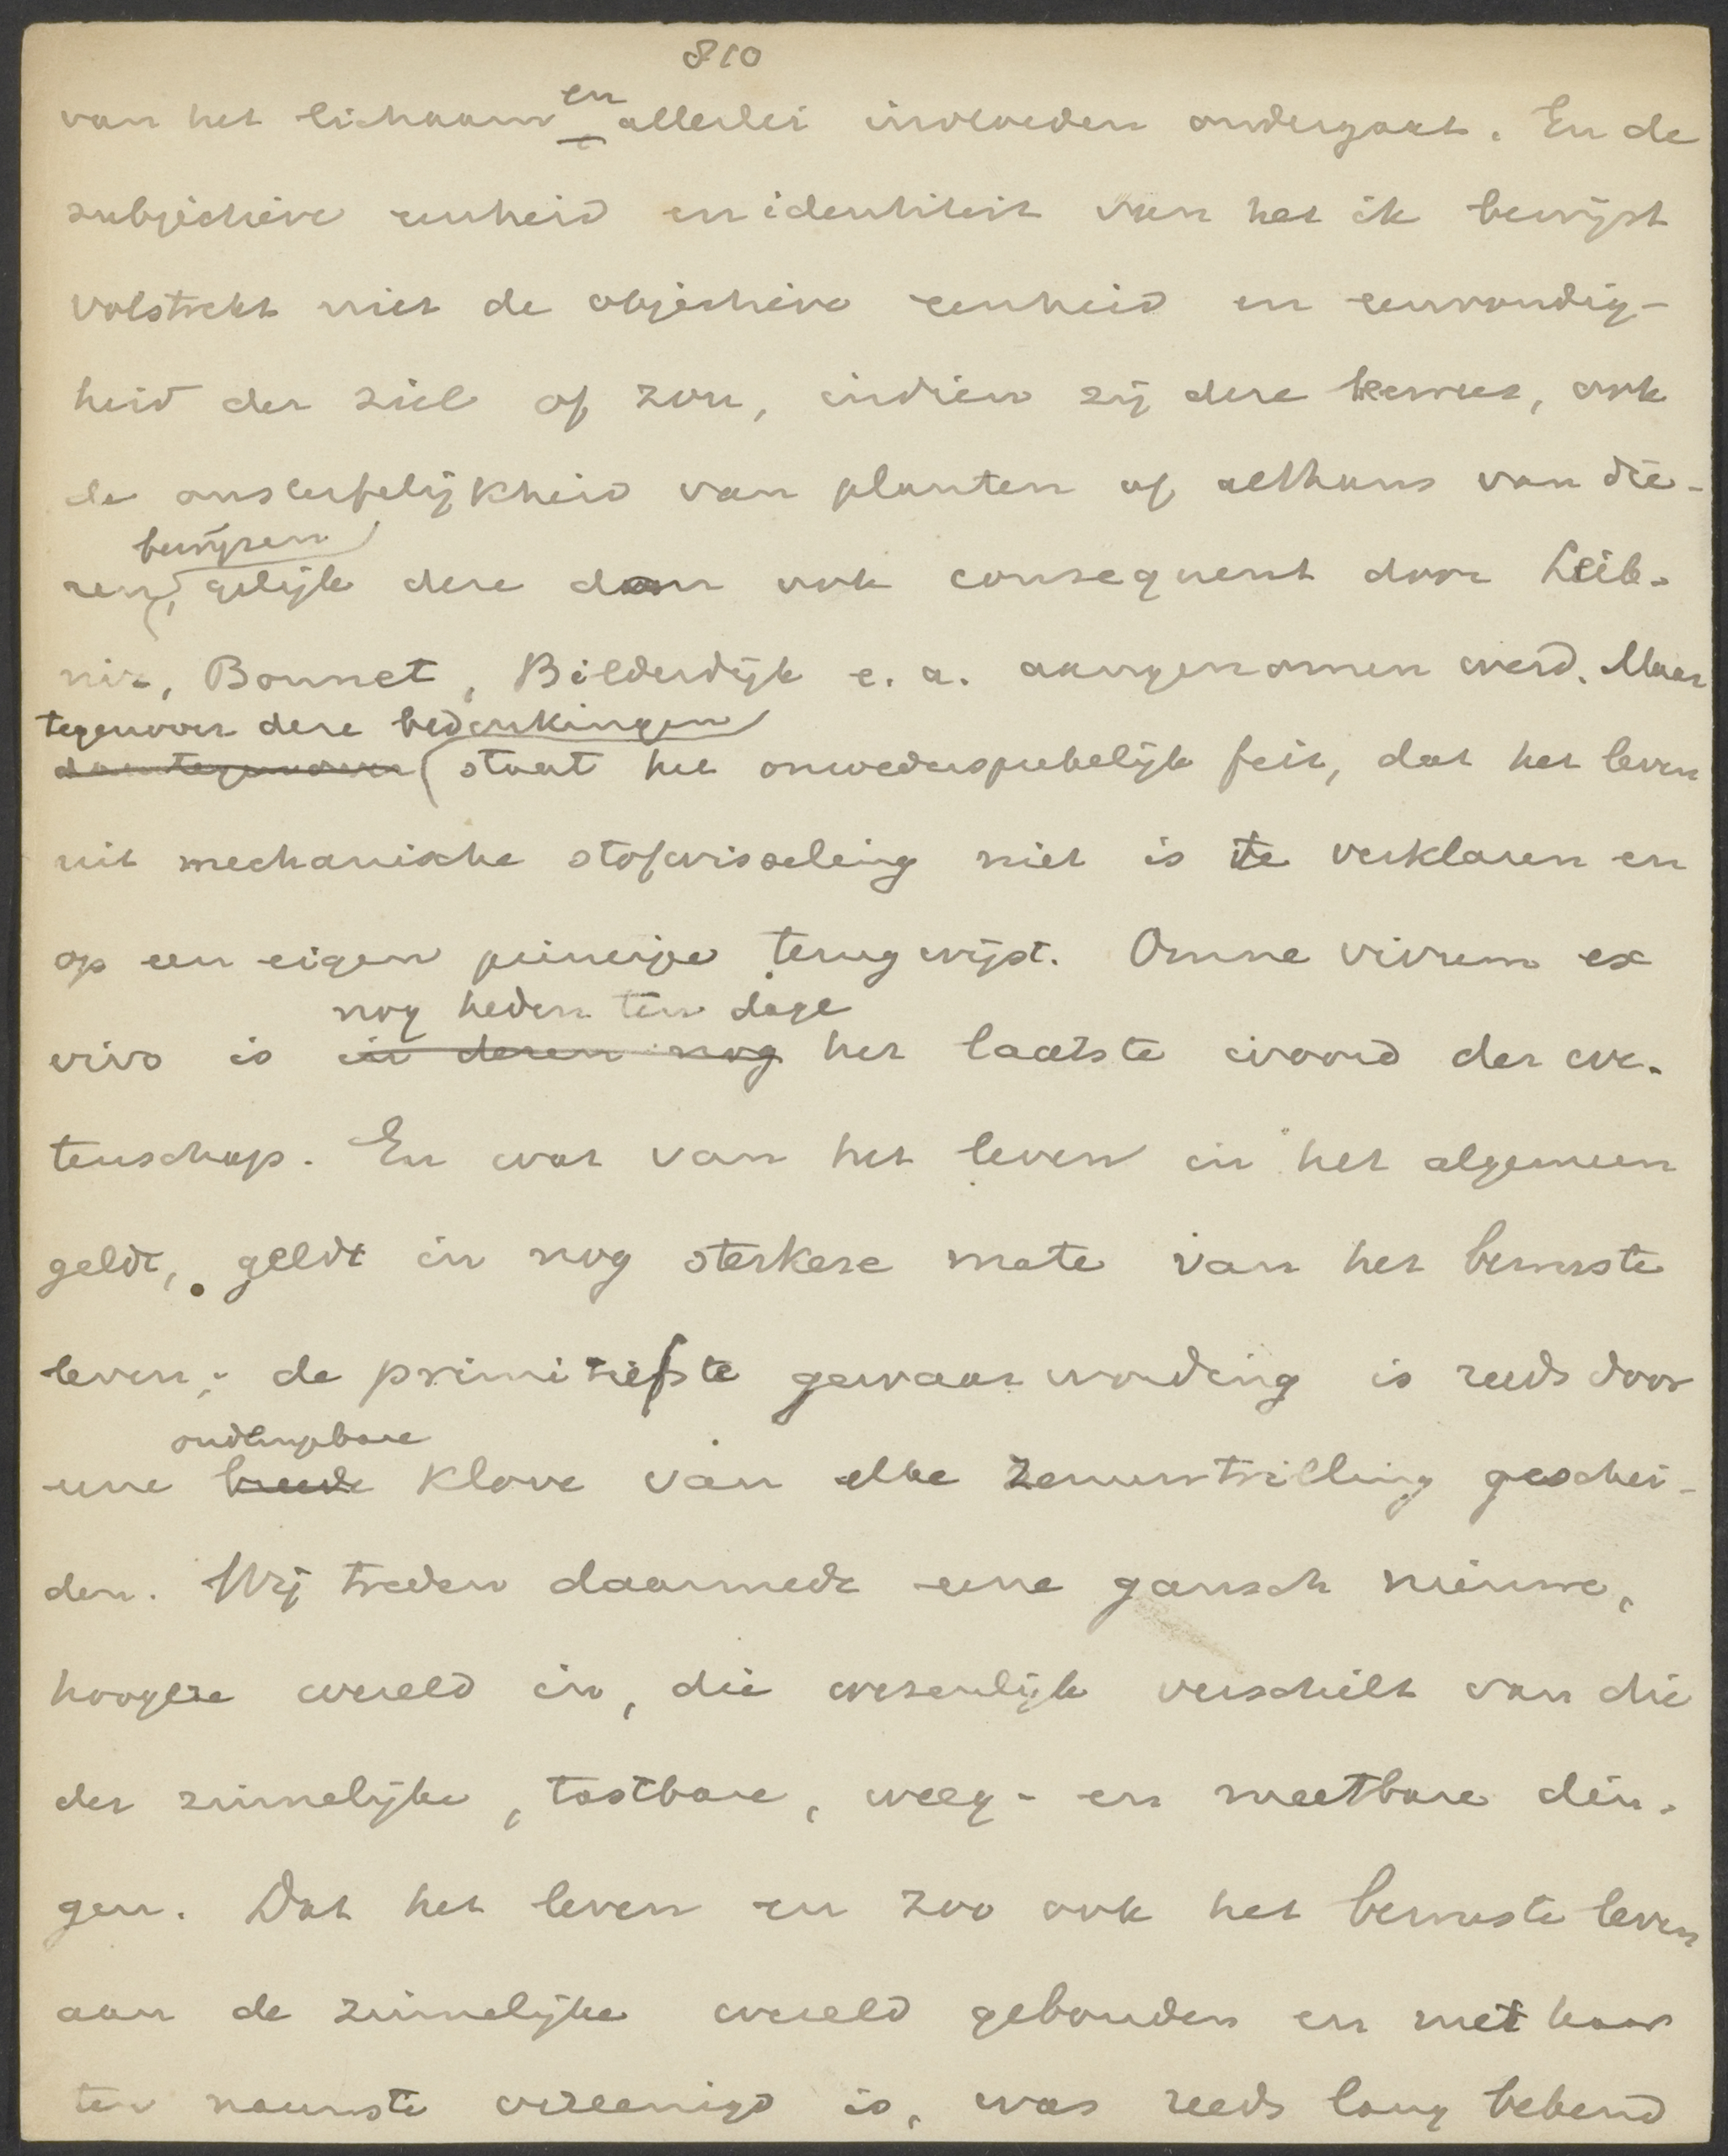 810
van het lichaam en allerlei invloeden ondergaat. En de
subjectieve eenheid en identiteit van het ik bewijst
volstrekt niet de objectieve eenheid en eenvoudig-
heid der ziel of zou, indien zij deze bewees, ook
de onsterfelijkheid van planten of althans van die-
bewijzen
ren, gelijk deze dan ook consequent door Leib-
niz, Bonnet, Bilderdijk e. a. aangenomen werd. Maar
tegenover deze bedenkingen
daartegenover staat het onwedersprekelijk feit, dat het leven
uit mechanische stofwisseling niet is te verklaren en
op een eigen principe terugwijst. Omne vivum ex
nog heden ten dage
vivo is in dezen nog het laatste woord der we-
tenschap. En wat van het leven in het algemeen
geldt, geldt in nog sterkere mate van het bewuste
leven; de primitiefste gewaarwording is reeds door
ondempbare
eene breede klove van elke zenuwtrilling geschei-
den. Wij treden daarmede eene gansch nieuwe,
hoogere wereld in, die wezenlijk verschilt van die
der zinnelijke, tastbare, weeg- en meetbare din-
gen. Dat het leven en zoo ook het bewuste leven
aan de zinnelijke wereld gebonden en met haar
ten nauwste vereenigd is, was reeds lang bekend